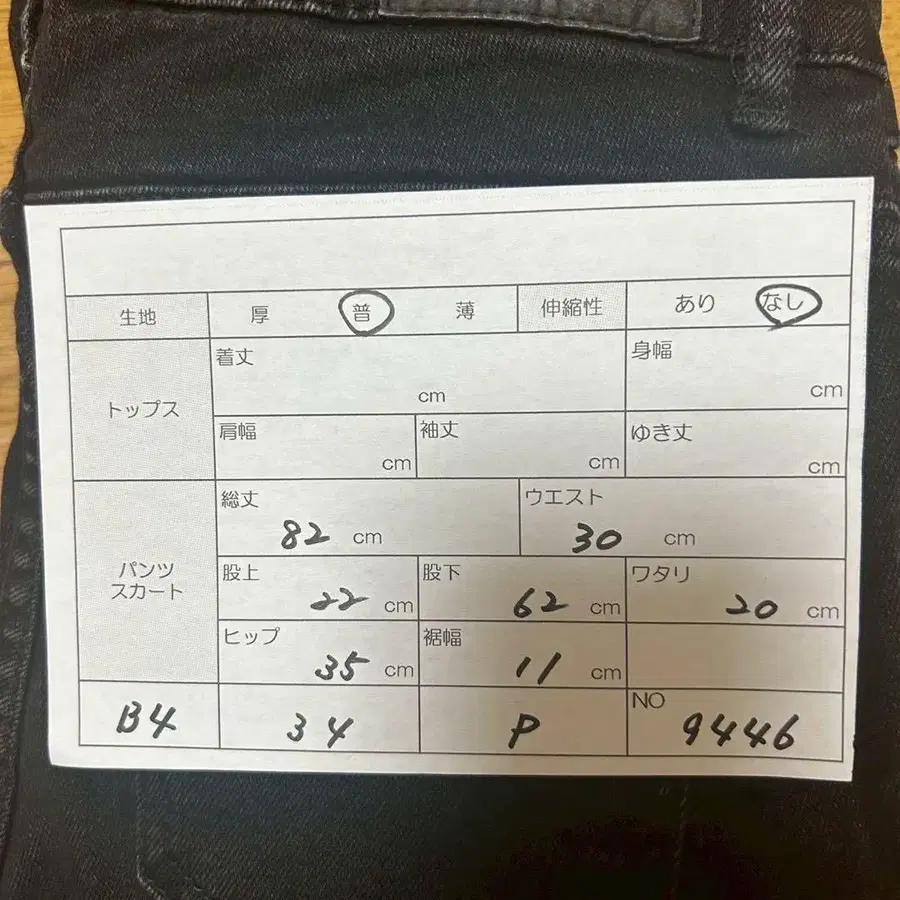 生地 厚 普 薄 伸縮性 あり なし
トップス
着丈 cm 身幅 cm
肩幅 cm 袖丈 cm ゆき丈 cm
パンツ
スカート
総丈 82 cm ウエスト 30 cm
股上 22 cm 股下 62 cm ワタリ 20 cm
ヒップ 35 cm 裾幅 11 cm
B4 34 P NO 9446